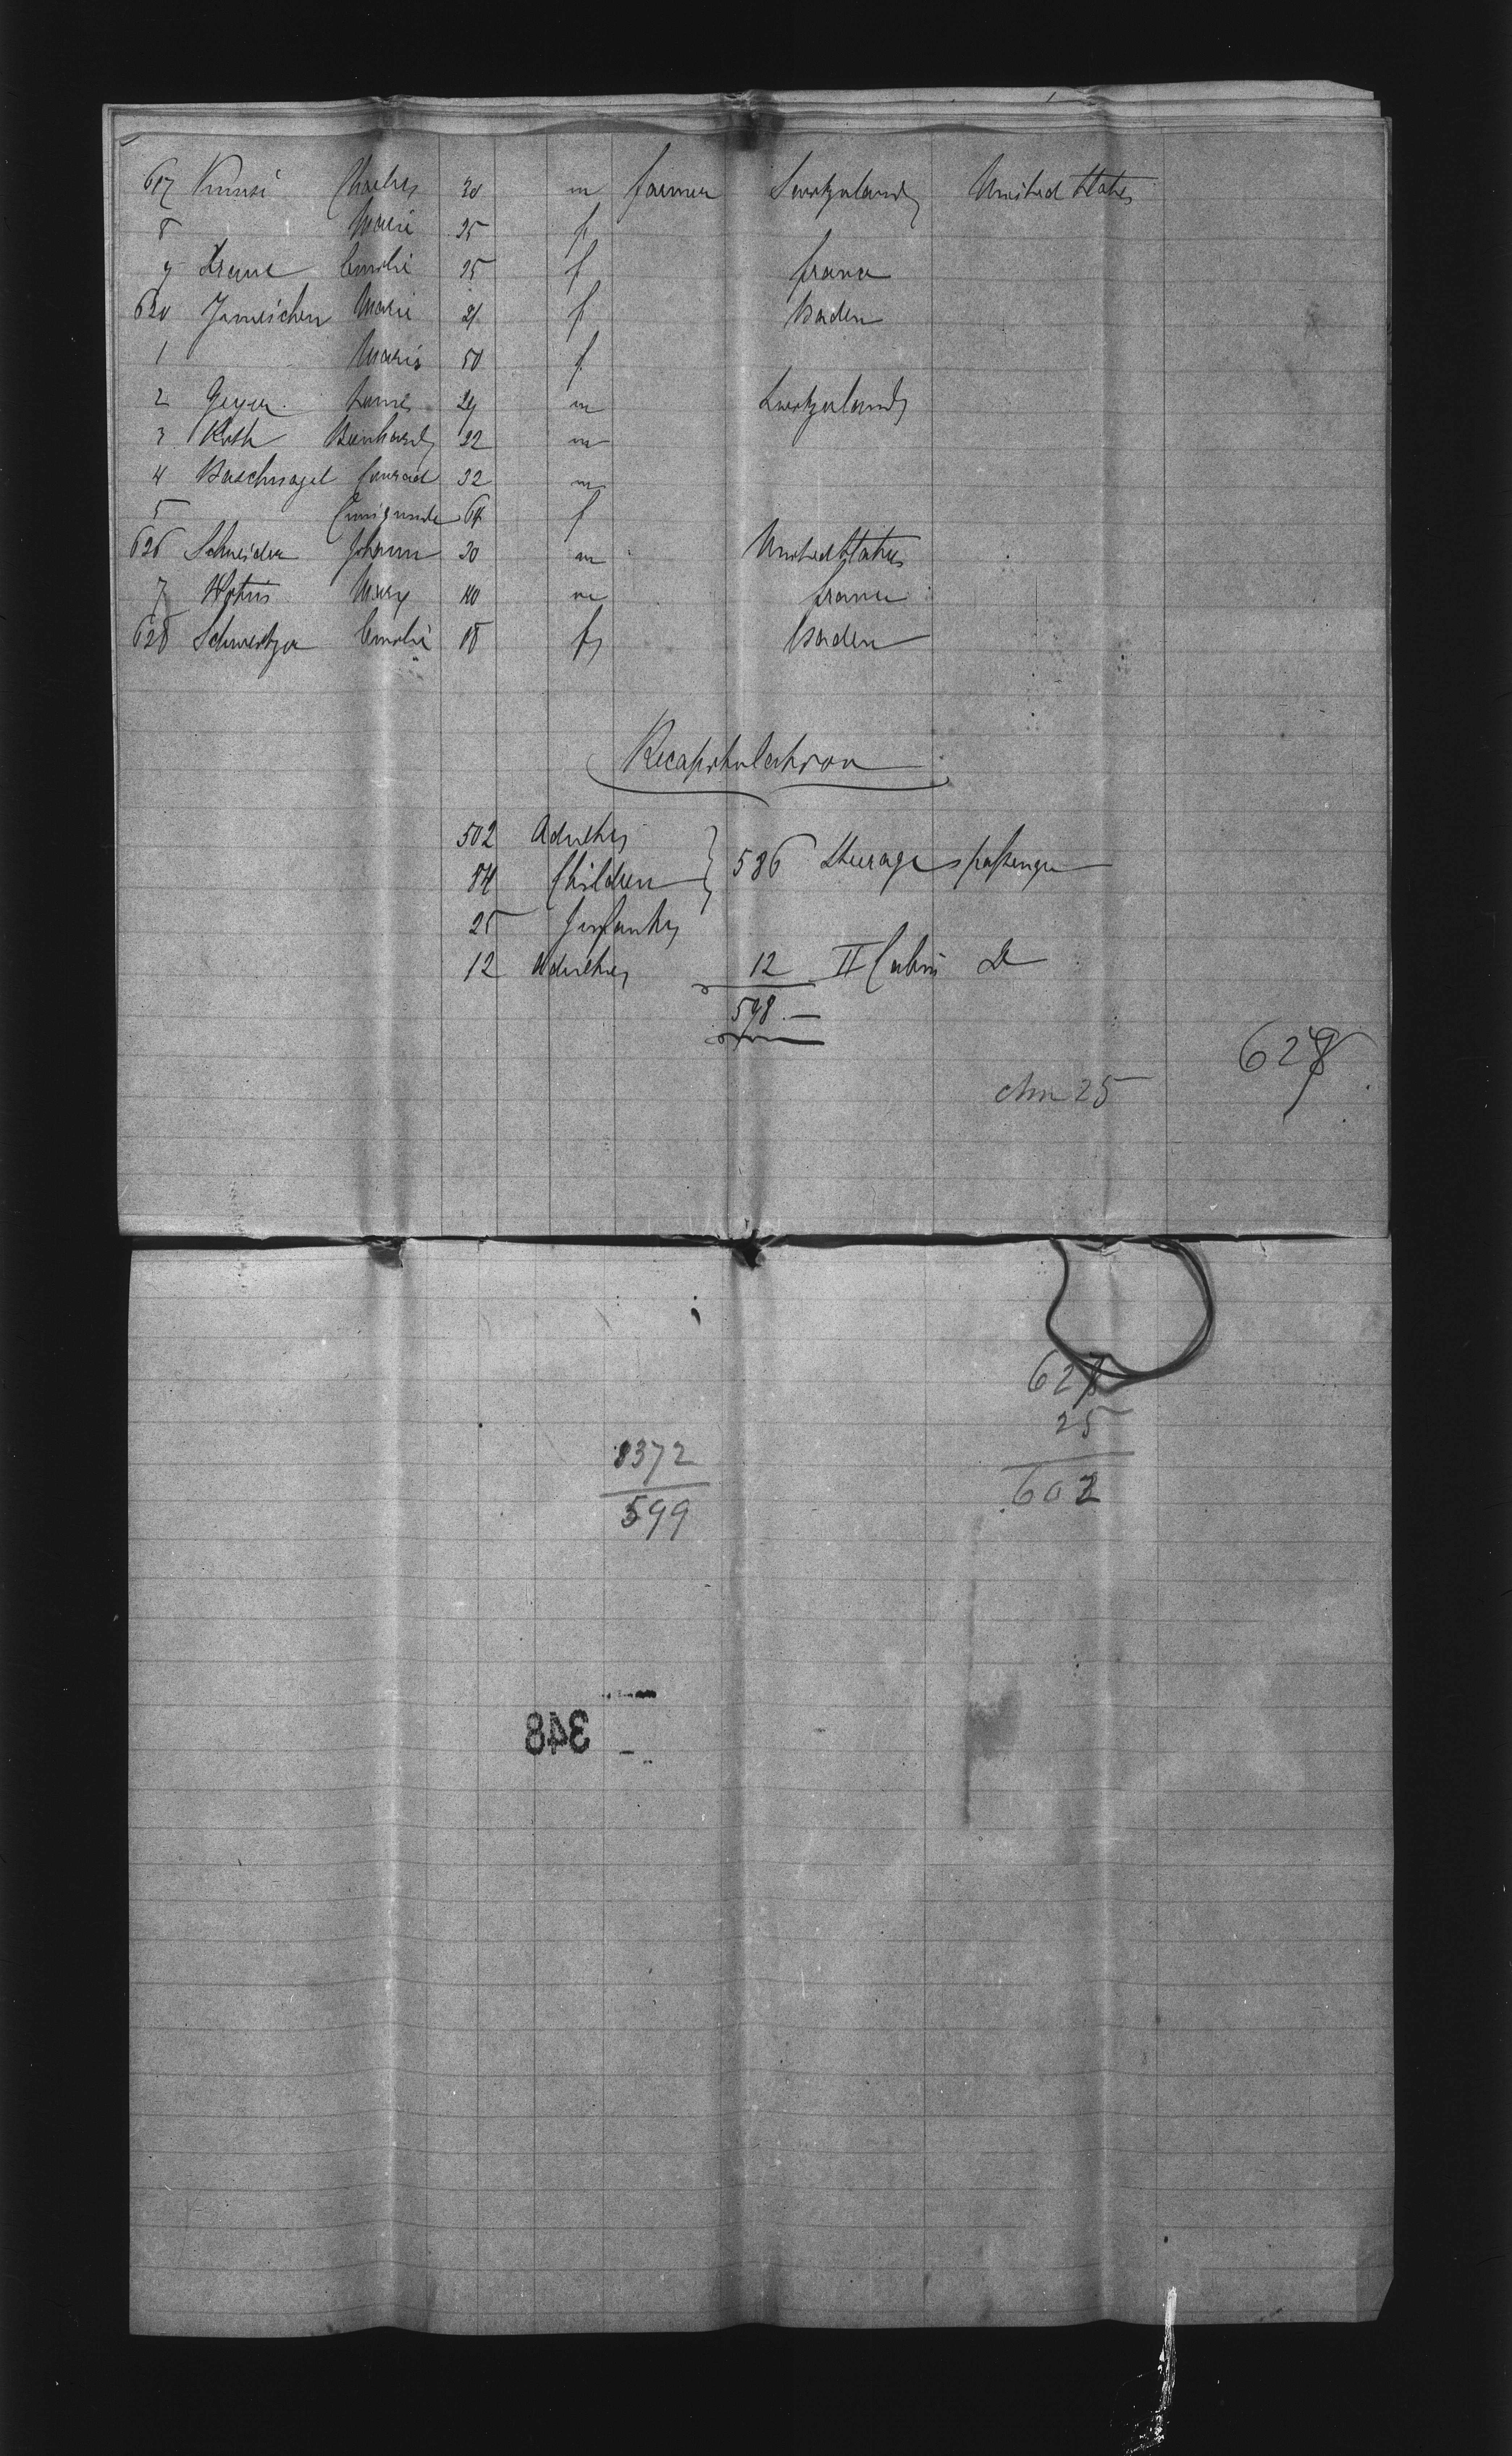 617 Kunsi Charles 30 m farmer Switzerland United States
8 Marie 25 f
9 Emilie 25 f france
620 Marie 21 f Baden
1 Maria 50 f
2 Geyer 29 m Switzerland
3 Roth Bernhard 22 m
4 Baschnagel Conrad 32 m
5 Cunigunde 64 f
626 Schneider Johann 30 m United States
7 Mary 40 m france
628 Schweitzer Emilie 18 f Baden
Recapitulation
502 Adultes
84 Children } 586 Steerage passenger
25 Infants
12 Adultes 12 II Cabin
598.—
628
25
628
25
1372
602
599
348